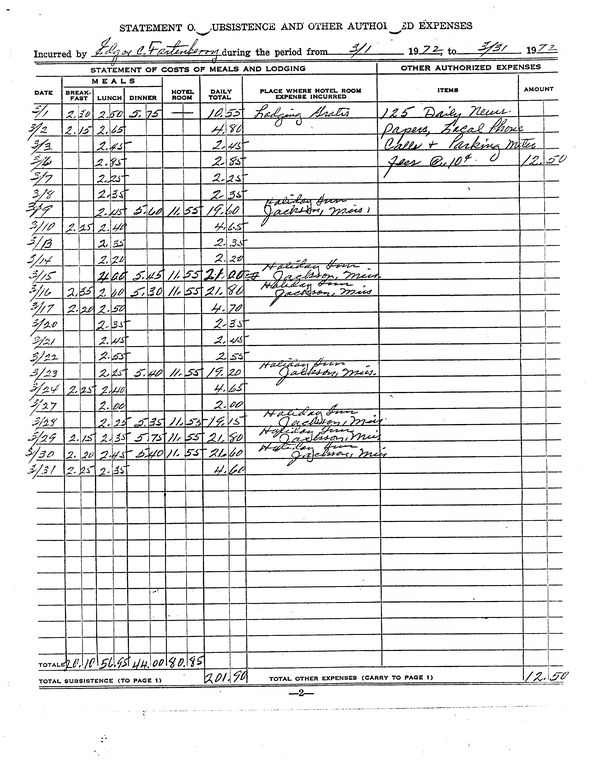 STATEMENT O UBSISTENCE AND OTHER AUTHO ED EXPENSES
Incurred by Edgar C. Fortenberry during the period from 3/1 1972, to 3/31 1972
STATEMENT OF COSTS OF MEALS AND LODGING OTHER AUTHORIZED EXPENSES
MEALS
DATE BREAK-FAST LUNCH DINNER HOTEL ROOM DAILY TOTAL PLACE WHERE HOTEL ROOM EXPENSE INCURRED ITEMS AMOUNT
3/1 2.30 2.50 5.75 — 10.55 Lodging Gratis 125 Daily News
3/2 2.15 2.65 4.80 Papers, Local Phone
3/3 2.45 2.45 Calls + Parking Meter
3/6 2.85 2.85 fees @ .10¢ 12.50
3/7 2.25 2.25
3/8 2.35 2.35
3/9 2.45 5.60 11.55 19.60 Holiday Inn Jackson, Miss.
3/10 2.25 2.40 4.65
3/13 2.35 2.35
3/14 2.20 2.20
3/15 5.45 11.55 21.00 Holiday Inn Jackson, Miss
3/16 2.35 2.60 5.30 11.55 21.80 Holiday Inn Jackson, Miss
3/17 2.20 2.50 4.70
3/20 2.35 2.35
3/21 2.45 2.45
3/22 2.55 2.55
3/23 2.25 5.40 11.55 19.20 Holiday Inn Jackson, Miss.
3/24 2.25 2.40 4.65
3/27 2.00 2.00
3/28 2.25 5.35 11.55 19.15 Holiday Inn Jackson, Miss
3/29 2.15 2.35 5.75 11.55 21.80 Holiday Inn Jackson, Miss
3/30 2.20 2.45 5.40 11.55 21.60 Holiday Inn Jackson, Miss
3/31 2.25 2.35 4.60
TOTALS 20.10 56.95 44.00 80.85
TOTAL SUBSISTENCE (TO PAGE 1) 201.90 TOTAL OTHER EXPENSES (CARRY TO PAGE 1) 12.50
—2—